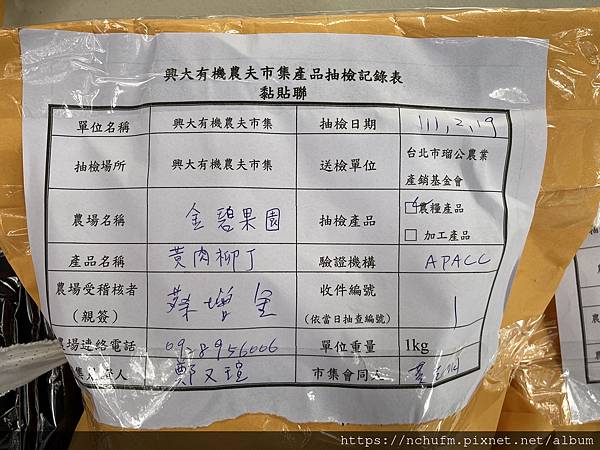 興大有機農夫市集產品抽檢記錄表
黏貼聯
單位名稱 興大有機農夫市集 抽檢日期 111,2,19
抽檢場所 興大有機農夫市集 送檢單位 台北市瑠公農業
產銷基金會
農場名稱 金碧果園 抽檢產品 農糧產品
加工產品
產品名稱 黃肉柳丁 驗證機構 APACC
農場受稽核者 增金 收件編號
(親簽) (依當日抽查編號) 1
農場連絡電話 單位重量 1kg
鄭又瑄 市集會同人
https://nchufm.pixnet.net/album